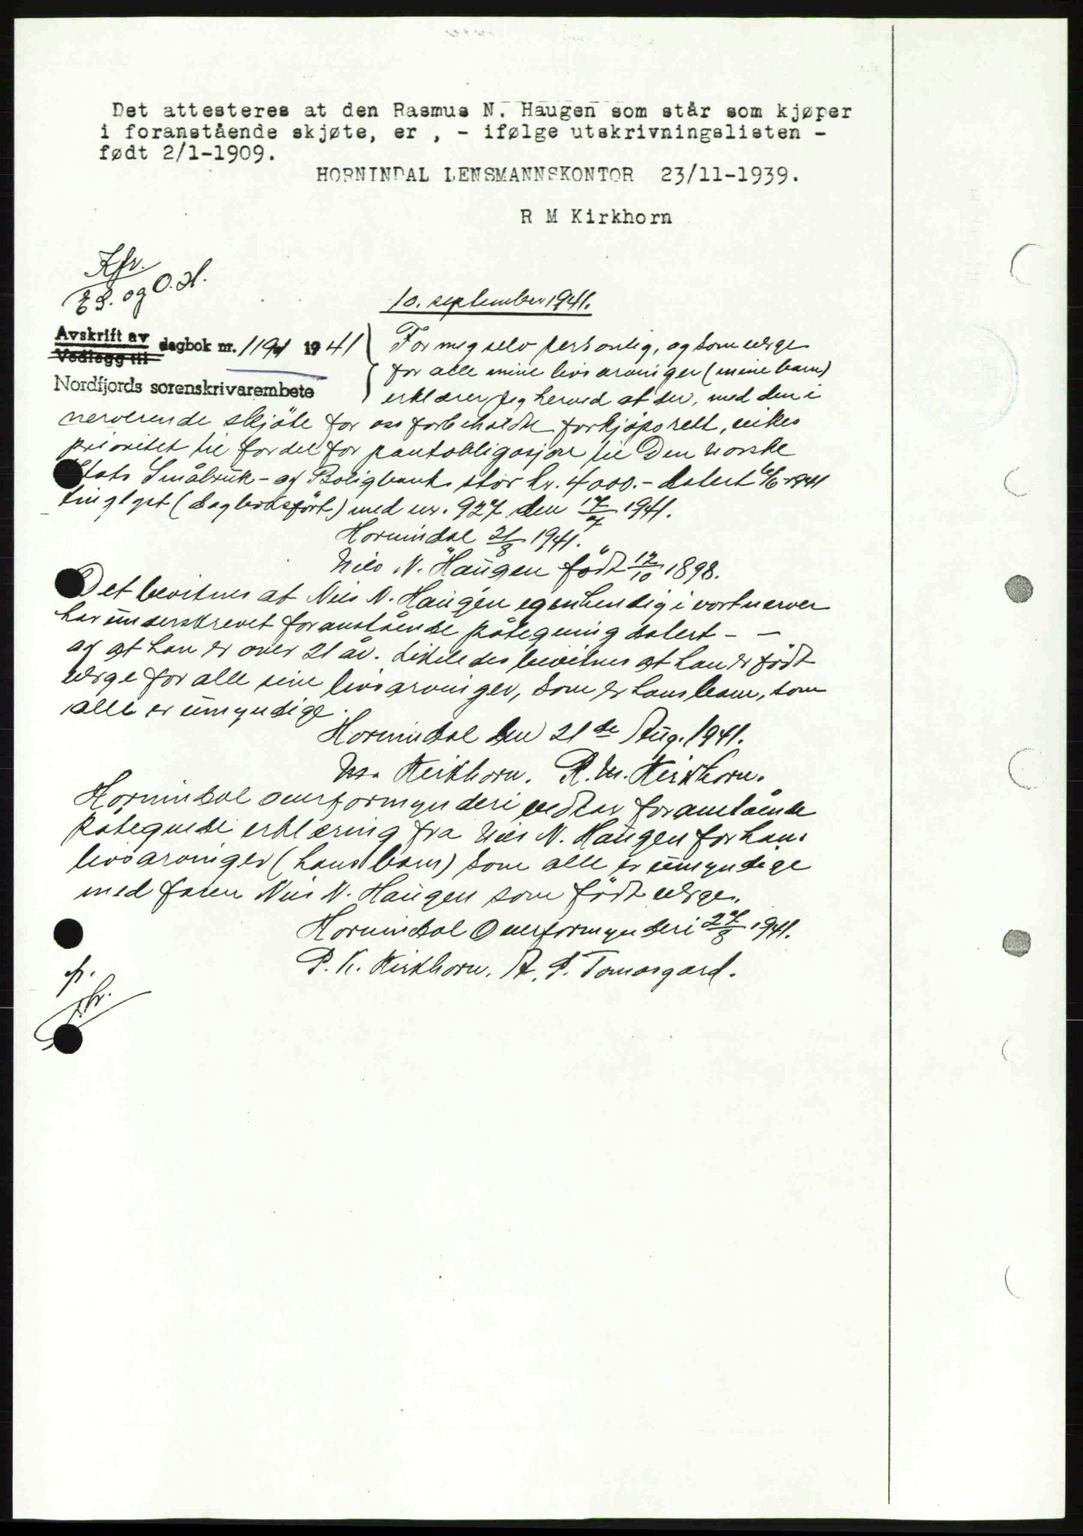 Det attesteres at den Rasmus N. Haugen som står som kjøper
i foranstående skjøte, er , - ifølge utskrivningslisten -
født 2/1-1909.
HORNINDAL LENSMANNSKONTOR 23/11-1939.
R M Kirkhorn
Kfr.
og O.H.
10. september 1941.
Avskrift av
Vedlegg til
dagbok nr. 1191 1941
Nordfjords sorenskrivarembete
For meg selv personlig, og som verge
for alle mine livsarvinger (mine barn)
erklærer jeg herved at den, med den i
nerverende skjöte for oss forbeholdte forkjöpsrett, vikes
prioritet til fordel for pantobligasjon til Den norske
Stats Småbruk- og Boligbank stor kr. 4000.- datert 4/6-1941
tinglyst (dagboksfört) med nr. 927 den 17/7 1941.
Hornindal 21/8 1941.
Nils N. Haugen född 12/10 1898.
Det bevitnes at Nils N. Haugen egenhendig i vort nerver
har underskrevet foranstående påtegning datert - -
og at han er over 21 år. Likeledes bevitnes at han er född
verge for alle sine livsarvinger, som er hans barn, som
alle er umyndige.
Hornindal den 21de Aug. 1941.
Kirkhorn. R. M. Kirkhorn.
Hornindal overformynderi vedtar foranstående
påtegnede erklæring fra Nils N. Haugen for hans
livsarvinger (hans barn) som alle er umyndige
med faren Nils N. Haugen som född verge.
Hornindal Overformynderi 27/8 1941.
P. K. Kirkhorn. A. P. Tomasgard.